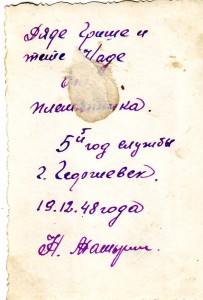 Дяде Грише и
тёте Наде
от
племянника.
5й год службы
г. Георгиевск.
19.12.48 года
Н.